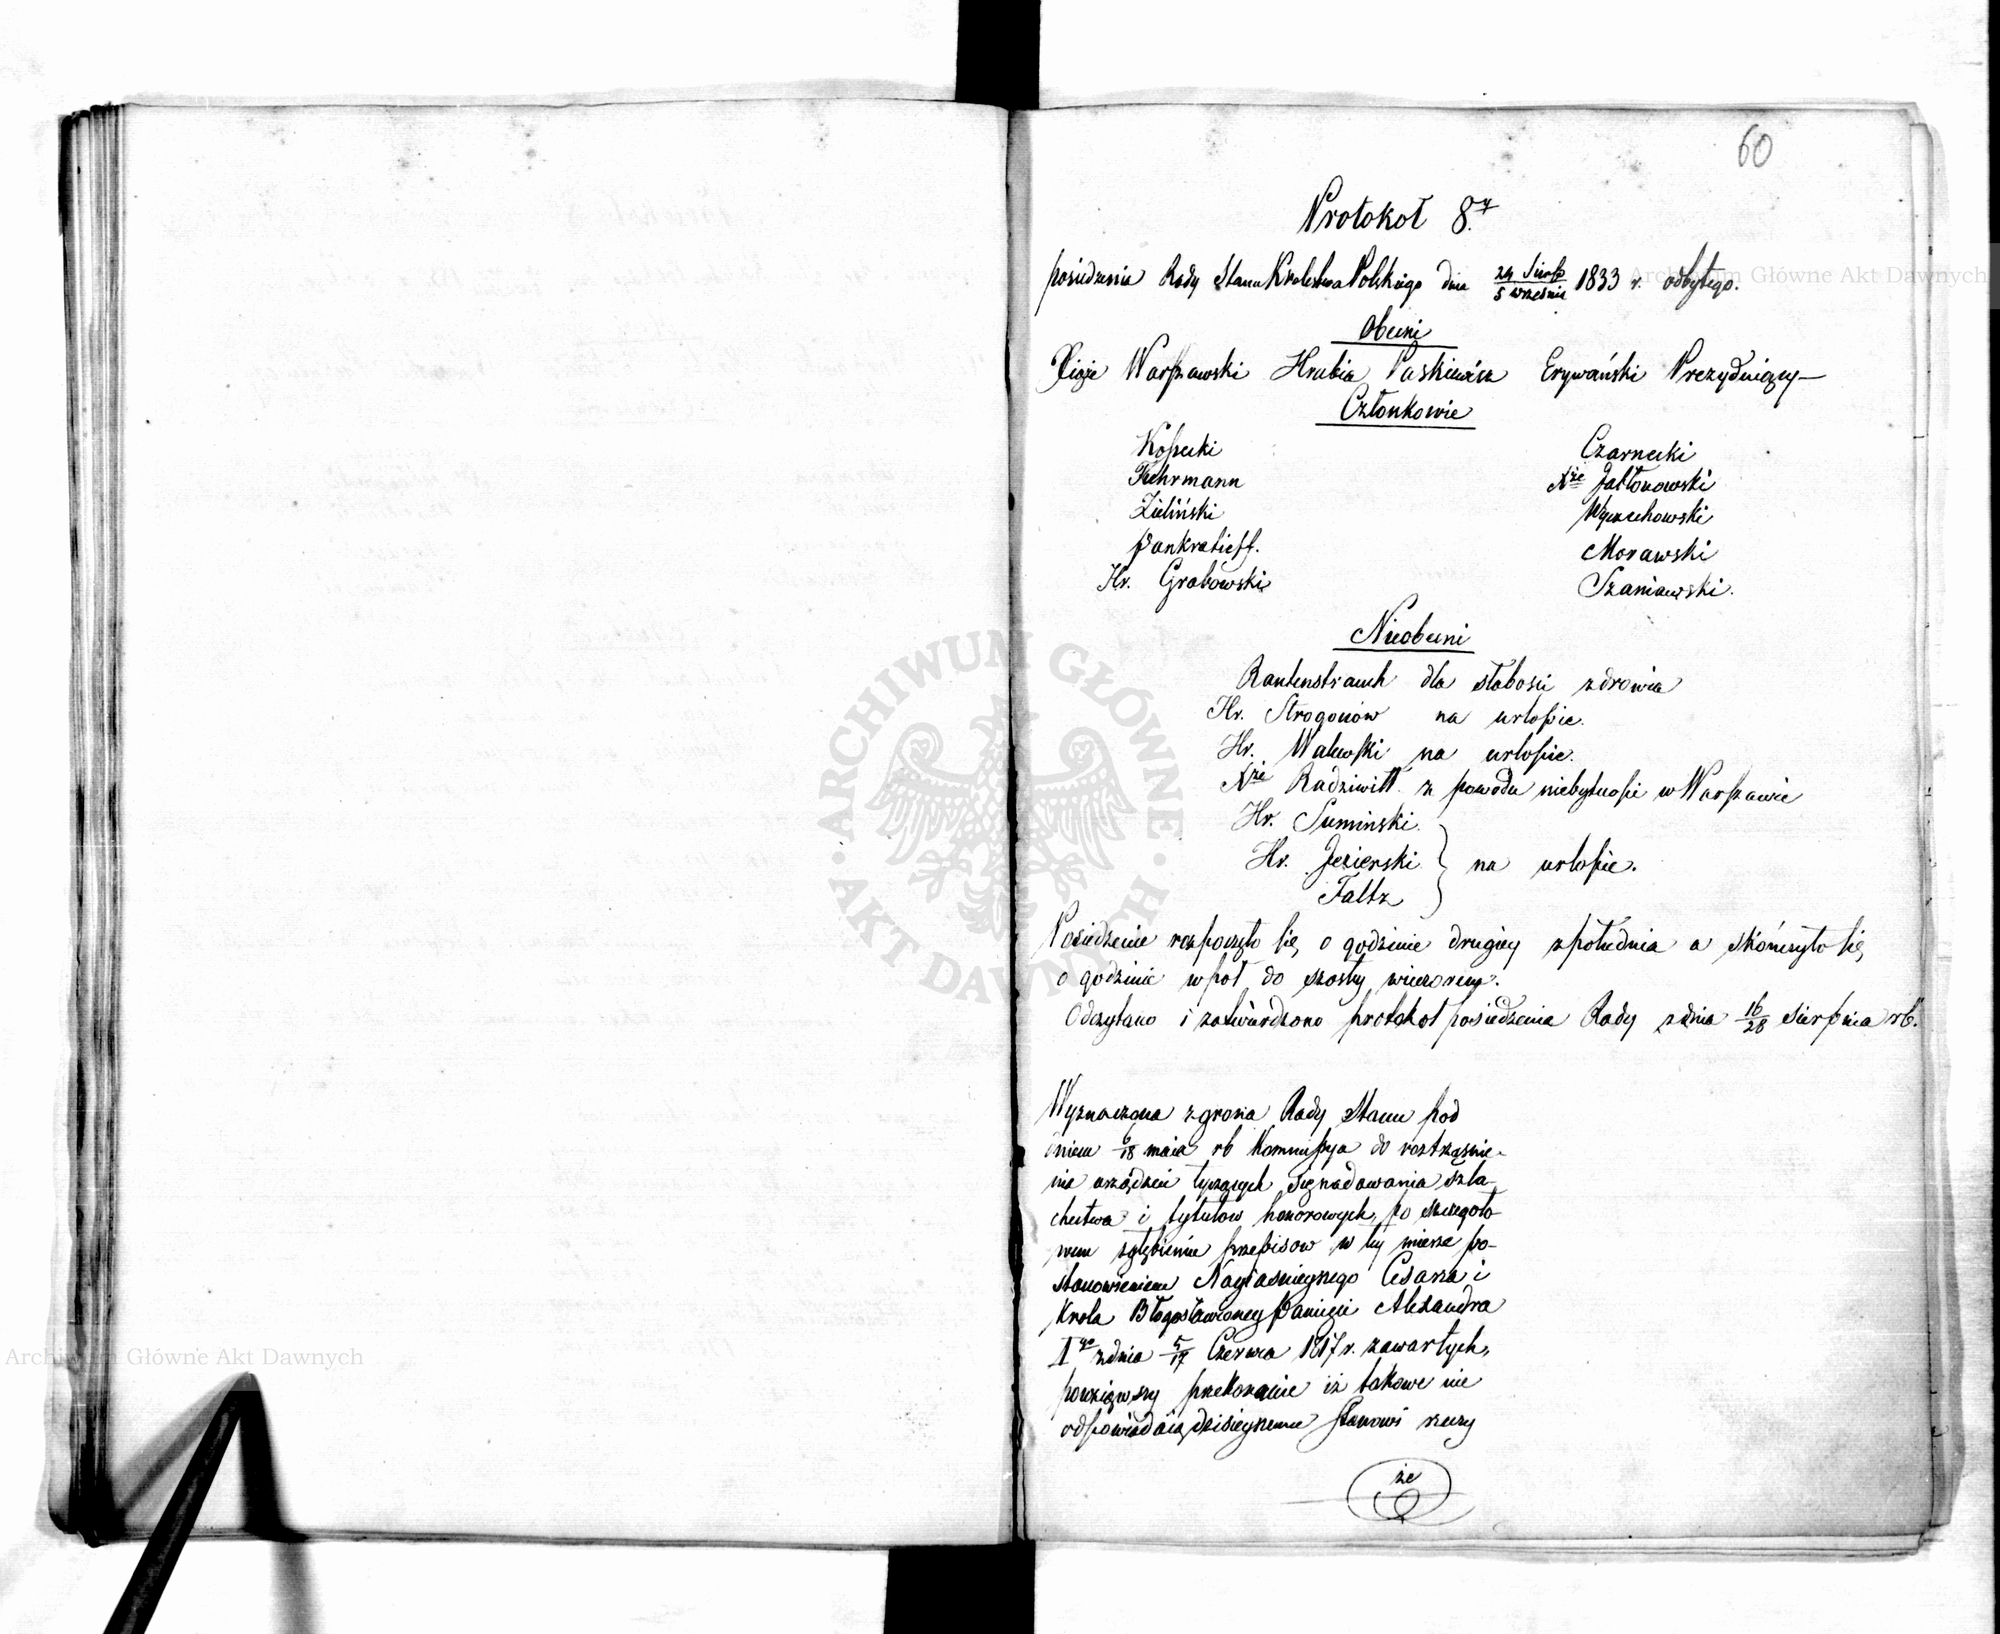 60
Protokoł 8.y
posiedzenia Rady Stanu Królestwa Polskiego dnia 24 Sierp / 5 września 1833 r. odbytego.
Obecni
Xiąże Warszawski Hrabia Paskiewicz Erywański Prezyduiący
Członkowie
Kossecki
Fuhrmann
Zieliński
Pankratieff.
Hr. Grabowski
Czarnecki
Xże Jabłonowski
Wyczechowski
Morawski
Szaniawski.
Nieobecni
Rautenstrauch dla słabości zdrowia
Hr. Strogonów na urlopie.
Hr. Walewski na urlopie.
Xże Radziwiłł z powodu niebytności w Warszawie
Hr. Suminski
Hr. Jezierski } na urlopie.
Faltz
Posiedzenie rozpoczęło się o godzinie drugiey z południa a skończyło się
o godzinie wpoł do szostey wieczorem.
Odczytano i zatwierdzono protokoł posiedzenia Rady z dnia 16/28 Sierpnia rb.
Wyznaczona z grona Rady Stanu pod
dniem 6/18 maia rb Kommissya do roztrząśnie-
nia urządzeń tyczących się nadawania szla-
chectwa i tytułow honorowych, po szczegoło-
wem zgłębieniu przepisow w tey mierze po-
stanowieniem Nayiaśnieyszego Cesarza i
Krola Błogosławioney Pamięci Alexandra
I go z dnia 5/17 Czerwca 1817 r. zawartych,
powziąwszy przekonanie iż takowe nie
odpowiadaią dzisieyszemu stanowi rzeczy
że
ARCHIWUM GŁÓWNE AKT DAWNYCH
Archiwum Główne Akt Dawnych
Archiwum Główne Akt Dawnych